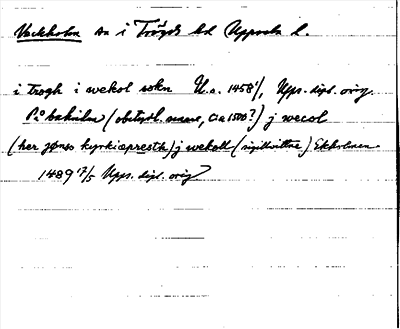 Veckholm sn i Trögds hd Uppsala l.
i trogh i wekol sokn U.a. 1458 1/1, Upps. dipl. orig.
På baksidan (obetydl. senare, ca 1500?) j wecol
(her jønss kyrkiopresth) j wekoll (sigillvittne) Ekholmen
1489 17/5 Upps. dipl. orig